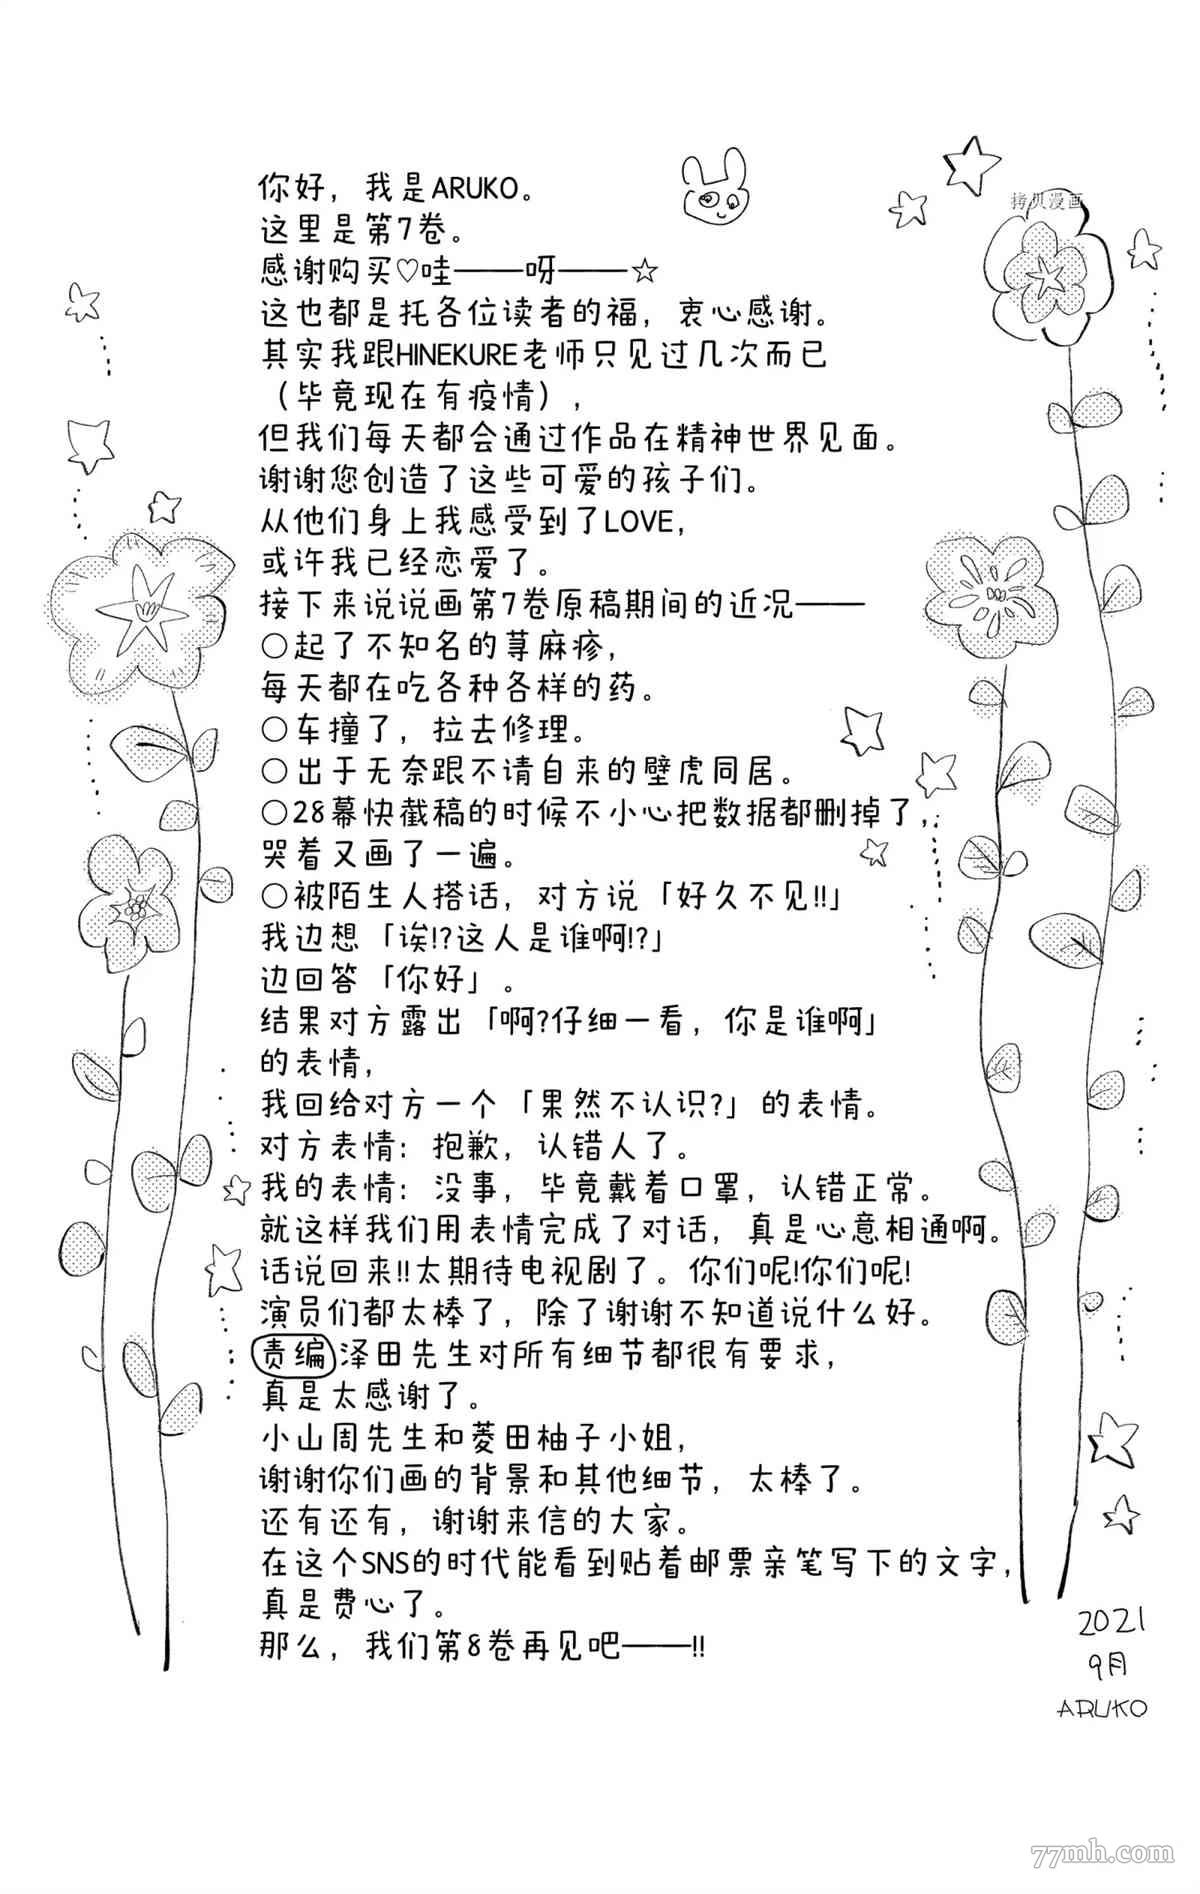 你好，我是ARUKO。
这里是第7卷。
感谢购买♡哇——呀——☆
这也都是托各位读者的福，衷心感谢。
其实我跟HINEKURE老师只见过几次而已
（毕竟现在有疫情），
但我们每天都会通过作品在精神世界见面。
谢谢您创造了这些可爱的孩子们。
从他们身上我感受到了LOVE，
或许我已经恋爱了。
接下来说说画第7卷原稿期间的近况——
○起了不知名的荨麻疹，
每天都在吃各种各样的药。
○车撞了，拉去修理。
○出于无奈跟不请自来的壁虎同居。
○28幕快截稿的时候不小心把数据都删掉了，
哭着又画了一遍。
○被陌生人搭话，对方说「好久不见!!」
我边想「诶!?这人是谁啊!?」
边回答「你好」。
结果对方露出「啊?仔细一看，你是谁啊」
的表情，
我回给对方一个「果然不认识?」的表情。
对方表情：抱歉，认错人了。
我的表情：没事，毕竟戴着口罩，认错正常。
就这样我们用表情完成了对话，真是心意相通啊。
话说回来!!太期待电视剧了。你们呢!你们呢!
演员们都太棒了，除了谢谢不知道说什么好。
责编 泽田先生对所有细节都很有要求，
真是太感谢了。
小山周先生和菱田柚子小姐，
谢谢你们画的背景和其他细节，太棒了。
还有还有，谢谢来信的大家。
在这个SNS的时代能看到贴着邮票亲笔写下的文字，
真是费心了。
那么，我们第8卷再见吧——!!
拷贝漫画
2021
9月
ARUKO
77mh.com